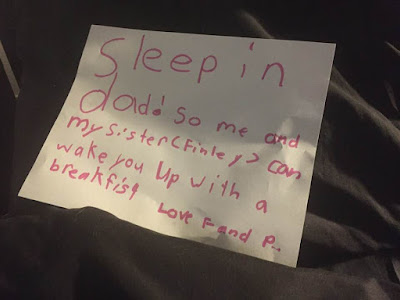 Sleep in
dad! So me and
my sister (Finley) can
wake you up with a
breakfist
Love F and P..